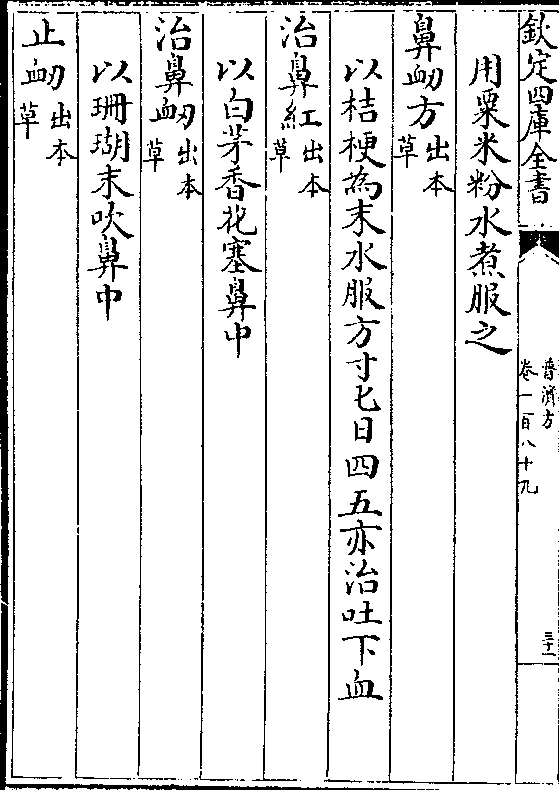 欽定四庫全書
普濟方
卷一百八十九
三十一
用粟米粉水煮服之
鼻衂方出本草
以桔梗為末水服方寸匕日四五亦治吐下血
治鼻紅出本草
以白茅香花塞鼻中
治鼻衂出本草
以珊瑚末吹鼻中
止衂出本草